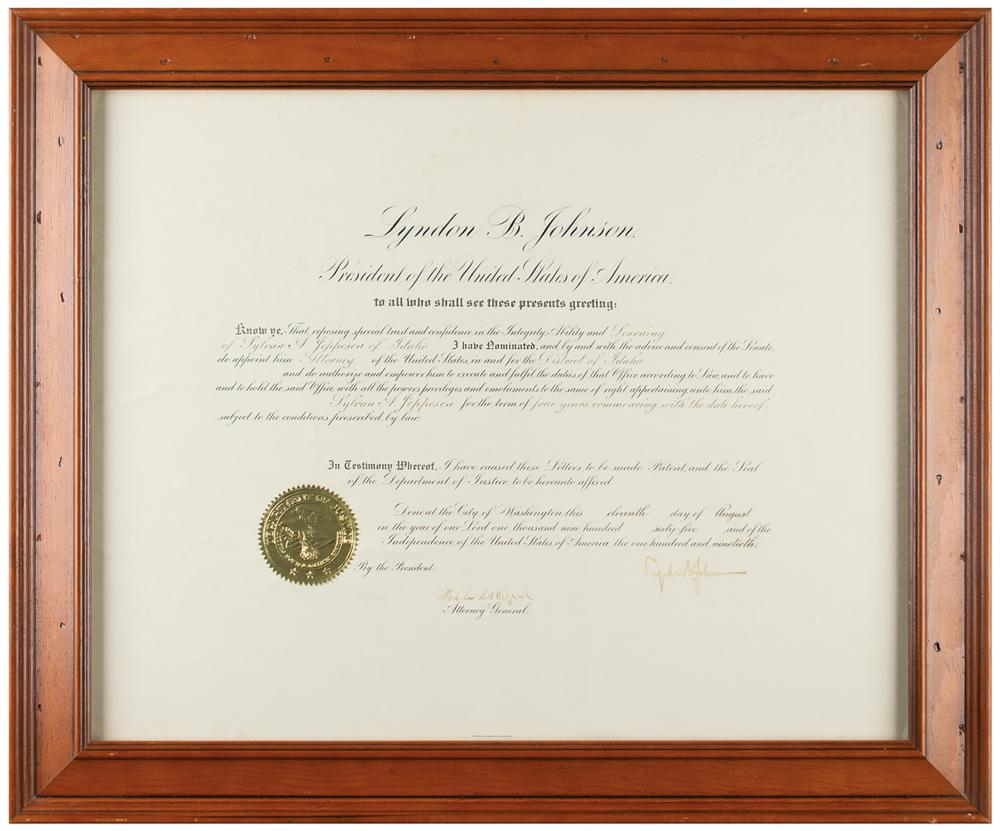 Lyndon B. Johnson,
President of the United States of America,
to all who shall see these presents greeting:
Know ye, That reposing special trust and confidence in the Integrity Ability and Learning
of Sylvan A. Jeppesen of Idaho I have Nominated, and, by and with the advice and consent of the Senate,
do appoint him Attorney of the United States, in and for the District of Idaho
and do authorize and empower him to execute and fulfil the duties of that Office according to Law, and to have
and to hold the said Office, with all the powers, privileges, and emoluments to the same of right appertaining unto him, the said
Sylvan A. Jeppesen for the term of four years commencing with the date hereof,
subject to the conditions prescribed by law.
In Testimony Whereof, I have caused these Letters to be made Patent, and the Seal
of the Department of Justice to be hereunto affixed
Done at the City of Washington this eleventh day of August
in the year of our Lord one thousand nine hundred sixty five and of the
Independence of the United States of America, the one hundred and ninetieth.
By the President:
Attorney General.